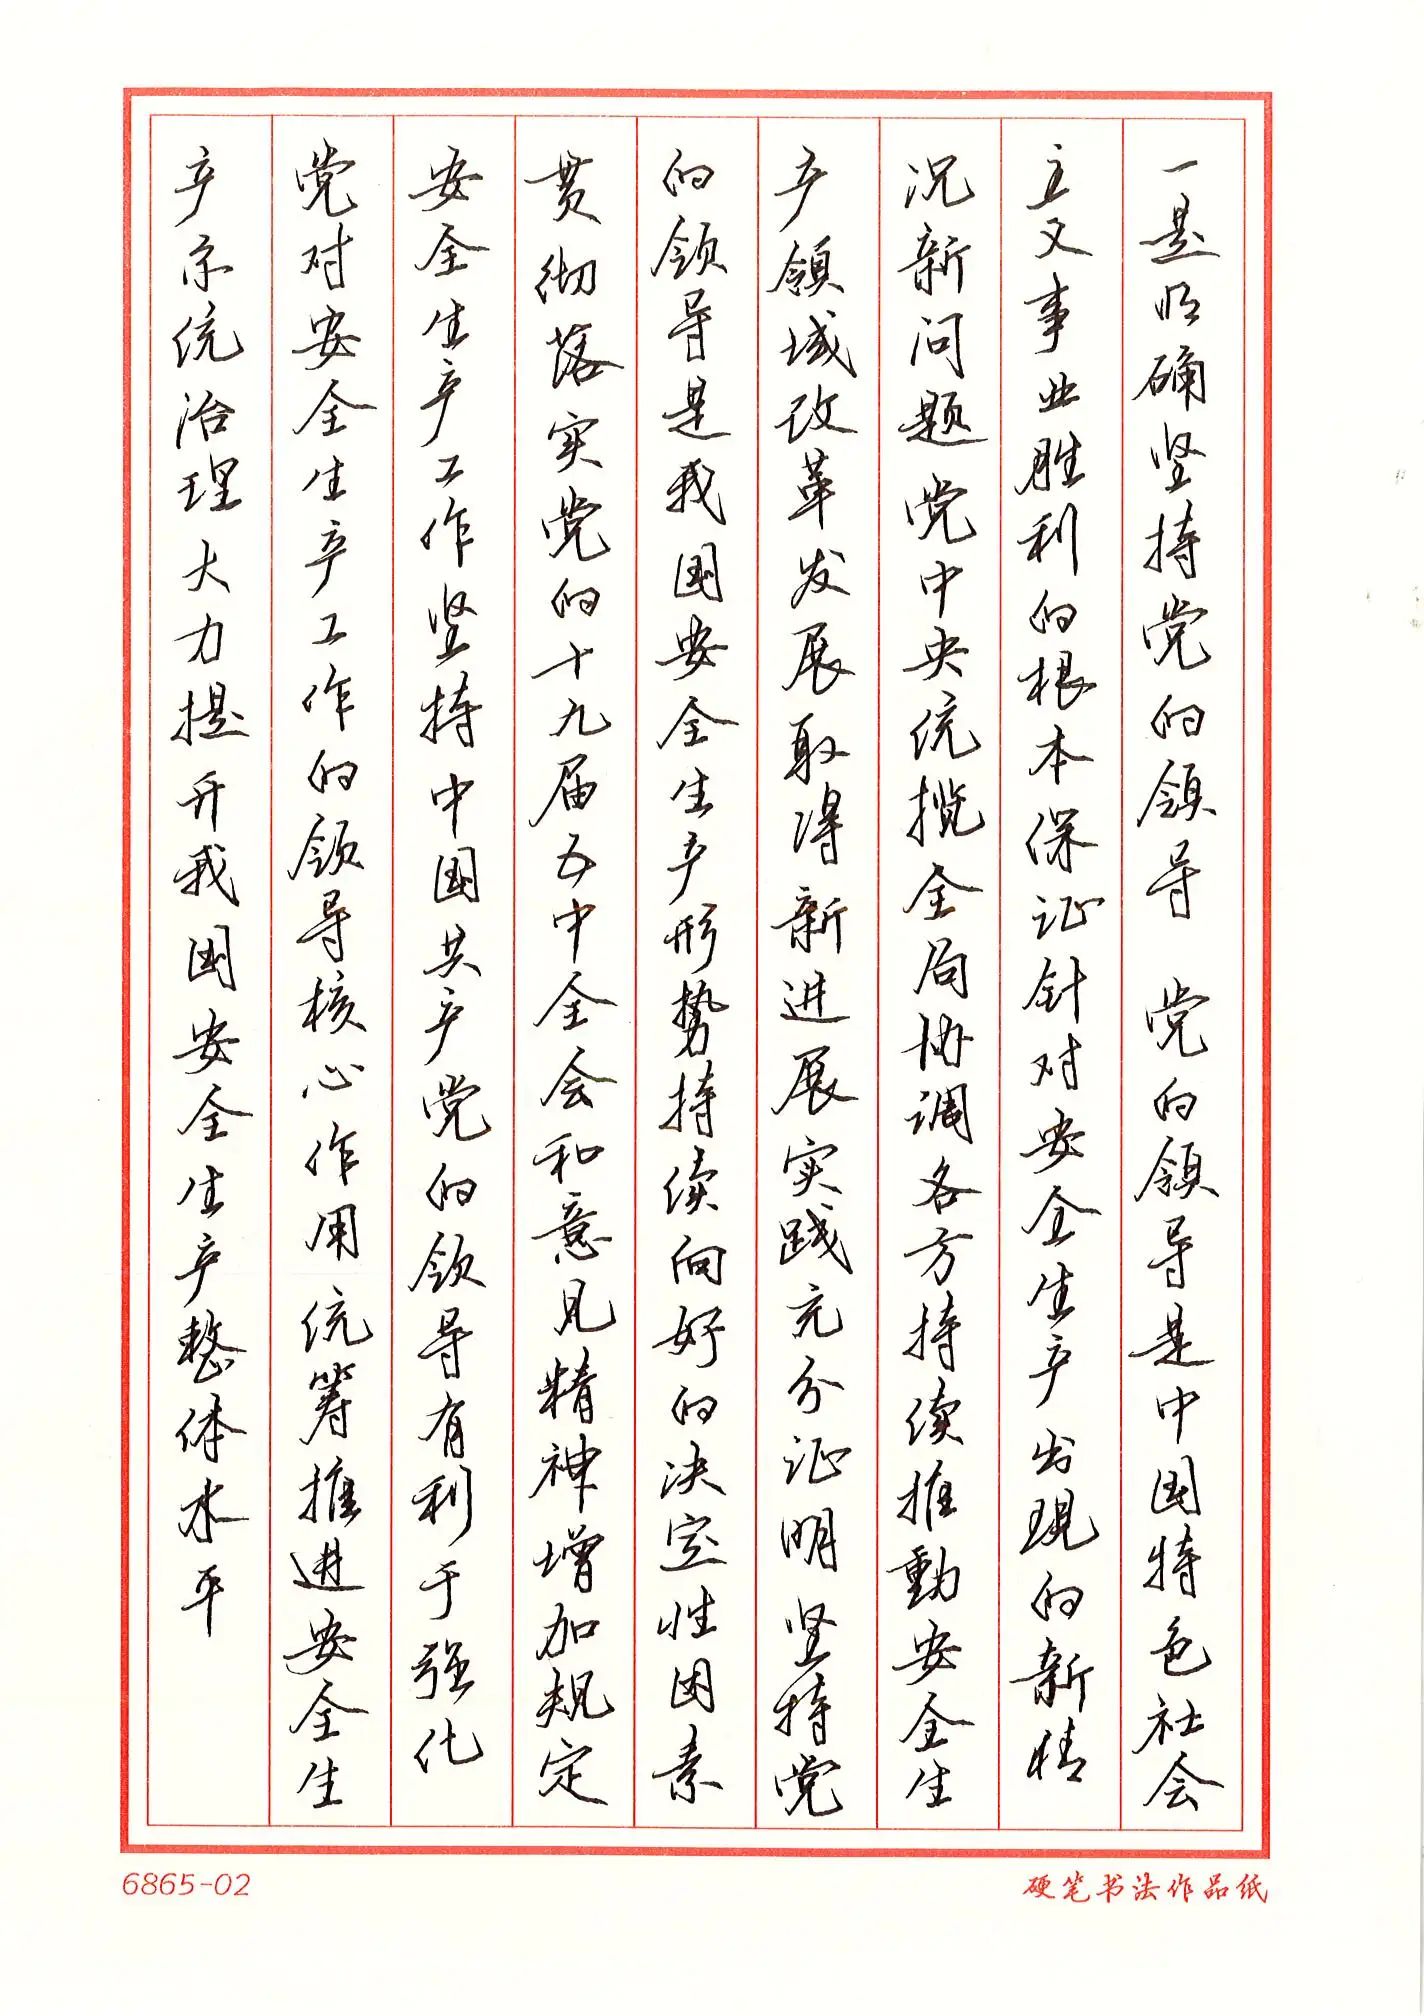 一是明确坚持党的領导 党的領导是中国特色社会
主义事业胜利的根本保证针对安全生产出现的新情
况新问题党中央统揽全局协调各方持续推動安全生
产領域改革发展取得新进展实践充分证明坚持党
的领导是我国安全生产形势持续向好的决定性因素
贯彻落实党的十九届五中全会和意见精神增加规定
安全生产工作坚持中国共产党的领导有利于强化
党对安全生产工作的领导核心作用统筹推进安全生
产系统治理大力提升我国安全生产整体水平
6865-02
硬笔书法作品纸